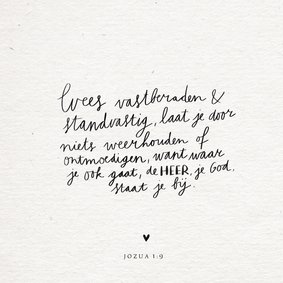 Wees vastberaden &
standvastig, laat je door
niets weerhouden of
ontmoedigen, want waar
je ook gaat, de HEER, je God,
staat je bij.
JOZUA 1:9